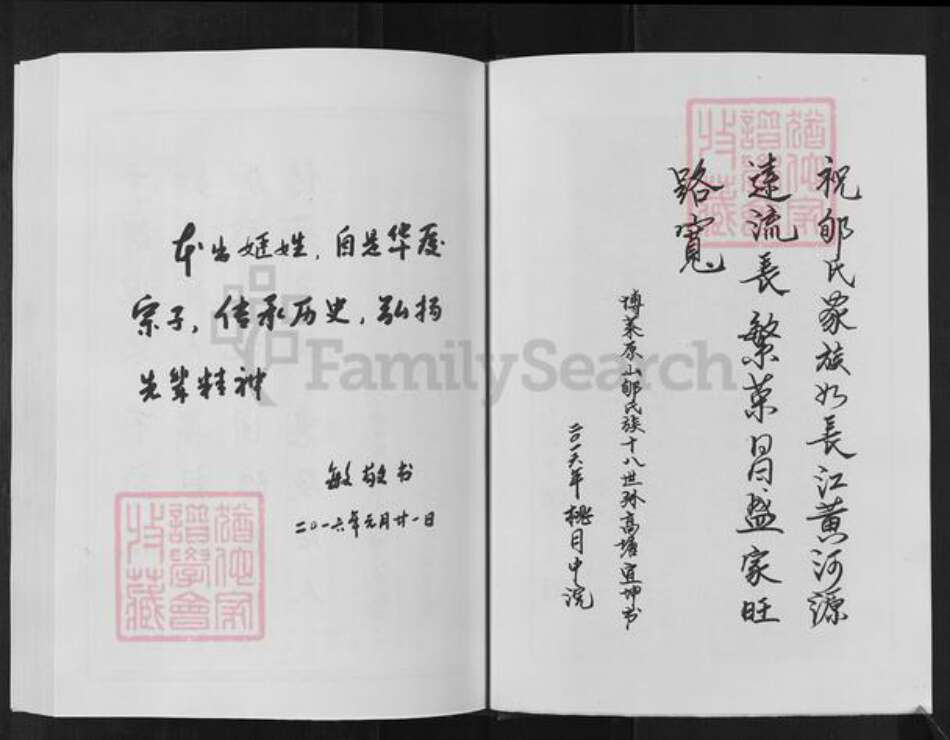 祝郇氏家族如長江黄河源
遠流長繁荣昌盛家旺
路寬
博莱原山郇氏族十八世孙高塘宜坤书
二〇一六年桃月中浣
本出姬姓，自是华夏
宗子，传承历史，弘扬
先辈精神
敏敬书
二〇一六年元月廿一日
FamilySearch